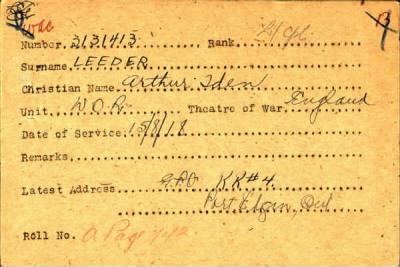 Number 3131413 Rank
Surname LEEDER
Christian Name Arthur Iden
Unit W.O.R. Theatre of War England
Date of Service 15/8/18
Remarks
Latest Address G.P.O. RR#4
Port Elgin, Ont
Roll No. A Page 442